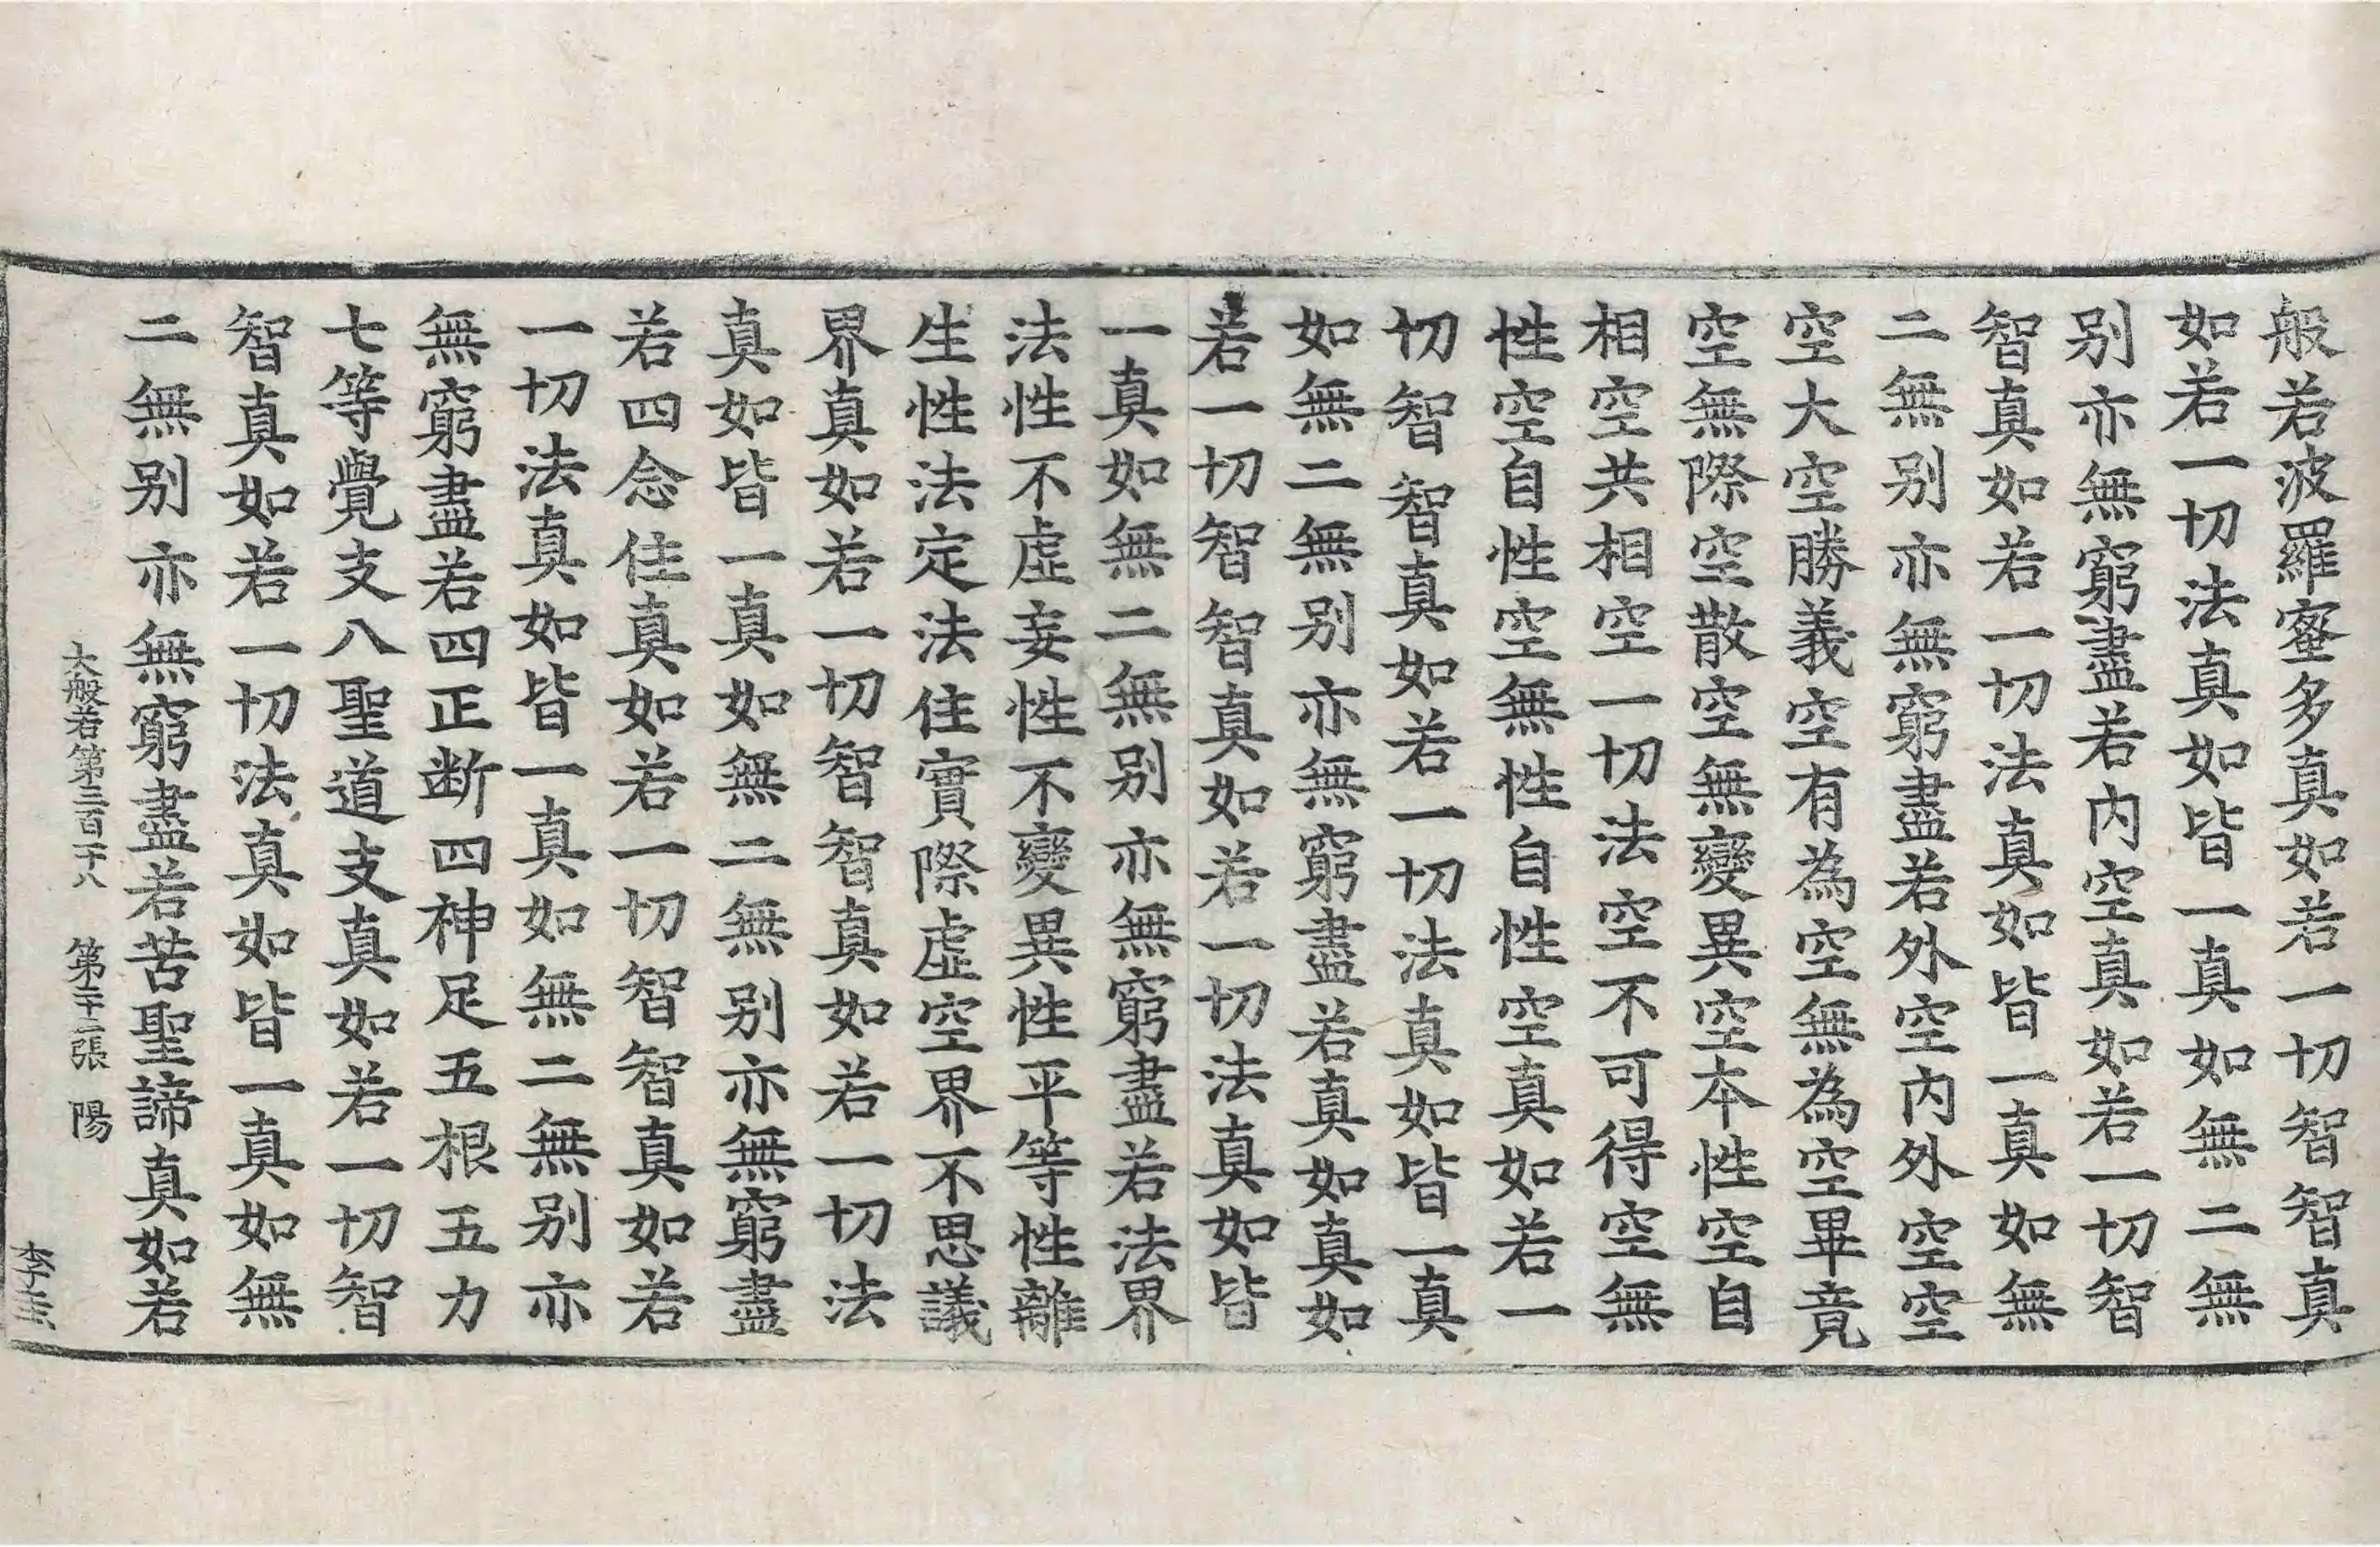 般若波羅蜜多真如若一切智智真
如若一切法真如皆一真如無二無
别亦無窮盡若内空真如若一切智
智真如若一切法真如皆一真如無
二無别亦無窮盡若外空内外空空
空大空勝義空有為空無為空畢竟
空無際空散空無變異空本性空自
相空共相空一切法空不可得空無
性空自性空無性自性空真如若一
切智智真如若一切法真如皆一真
如無二無别亦無窮盡若真如真如
若一切智智真如若一切法真如皆
一真如無二無别亦無窮盡若法界
法性不虛妄性不變異性平等性離
生性法定法住實際虛空界不思議
界真如若一切智智真如若一切法
真如皆一真如無二無别亦無窮盡
若四念住真如若一切智智真如若
一切法真如皆一真如無二無别亦
無窮盡若四正断四神足五根五力
七等覺支八聖道支真如若一切智
智真如若一切法真如皆一真如無
二無别亦無窮盡若苦聖諦真如若
大般若第三百十八 第二十二張 陽
李